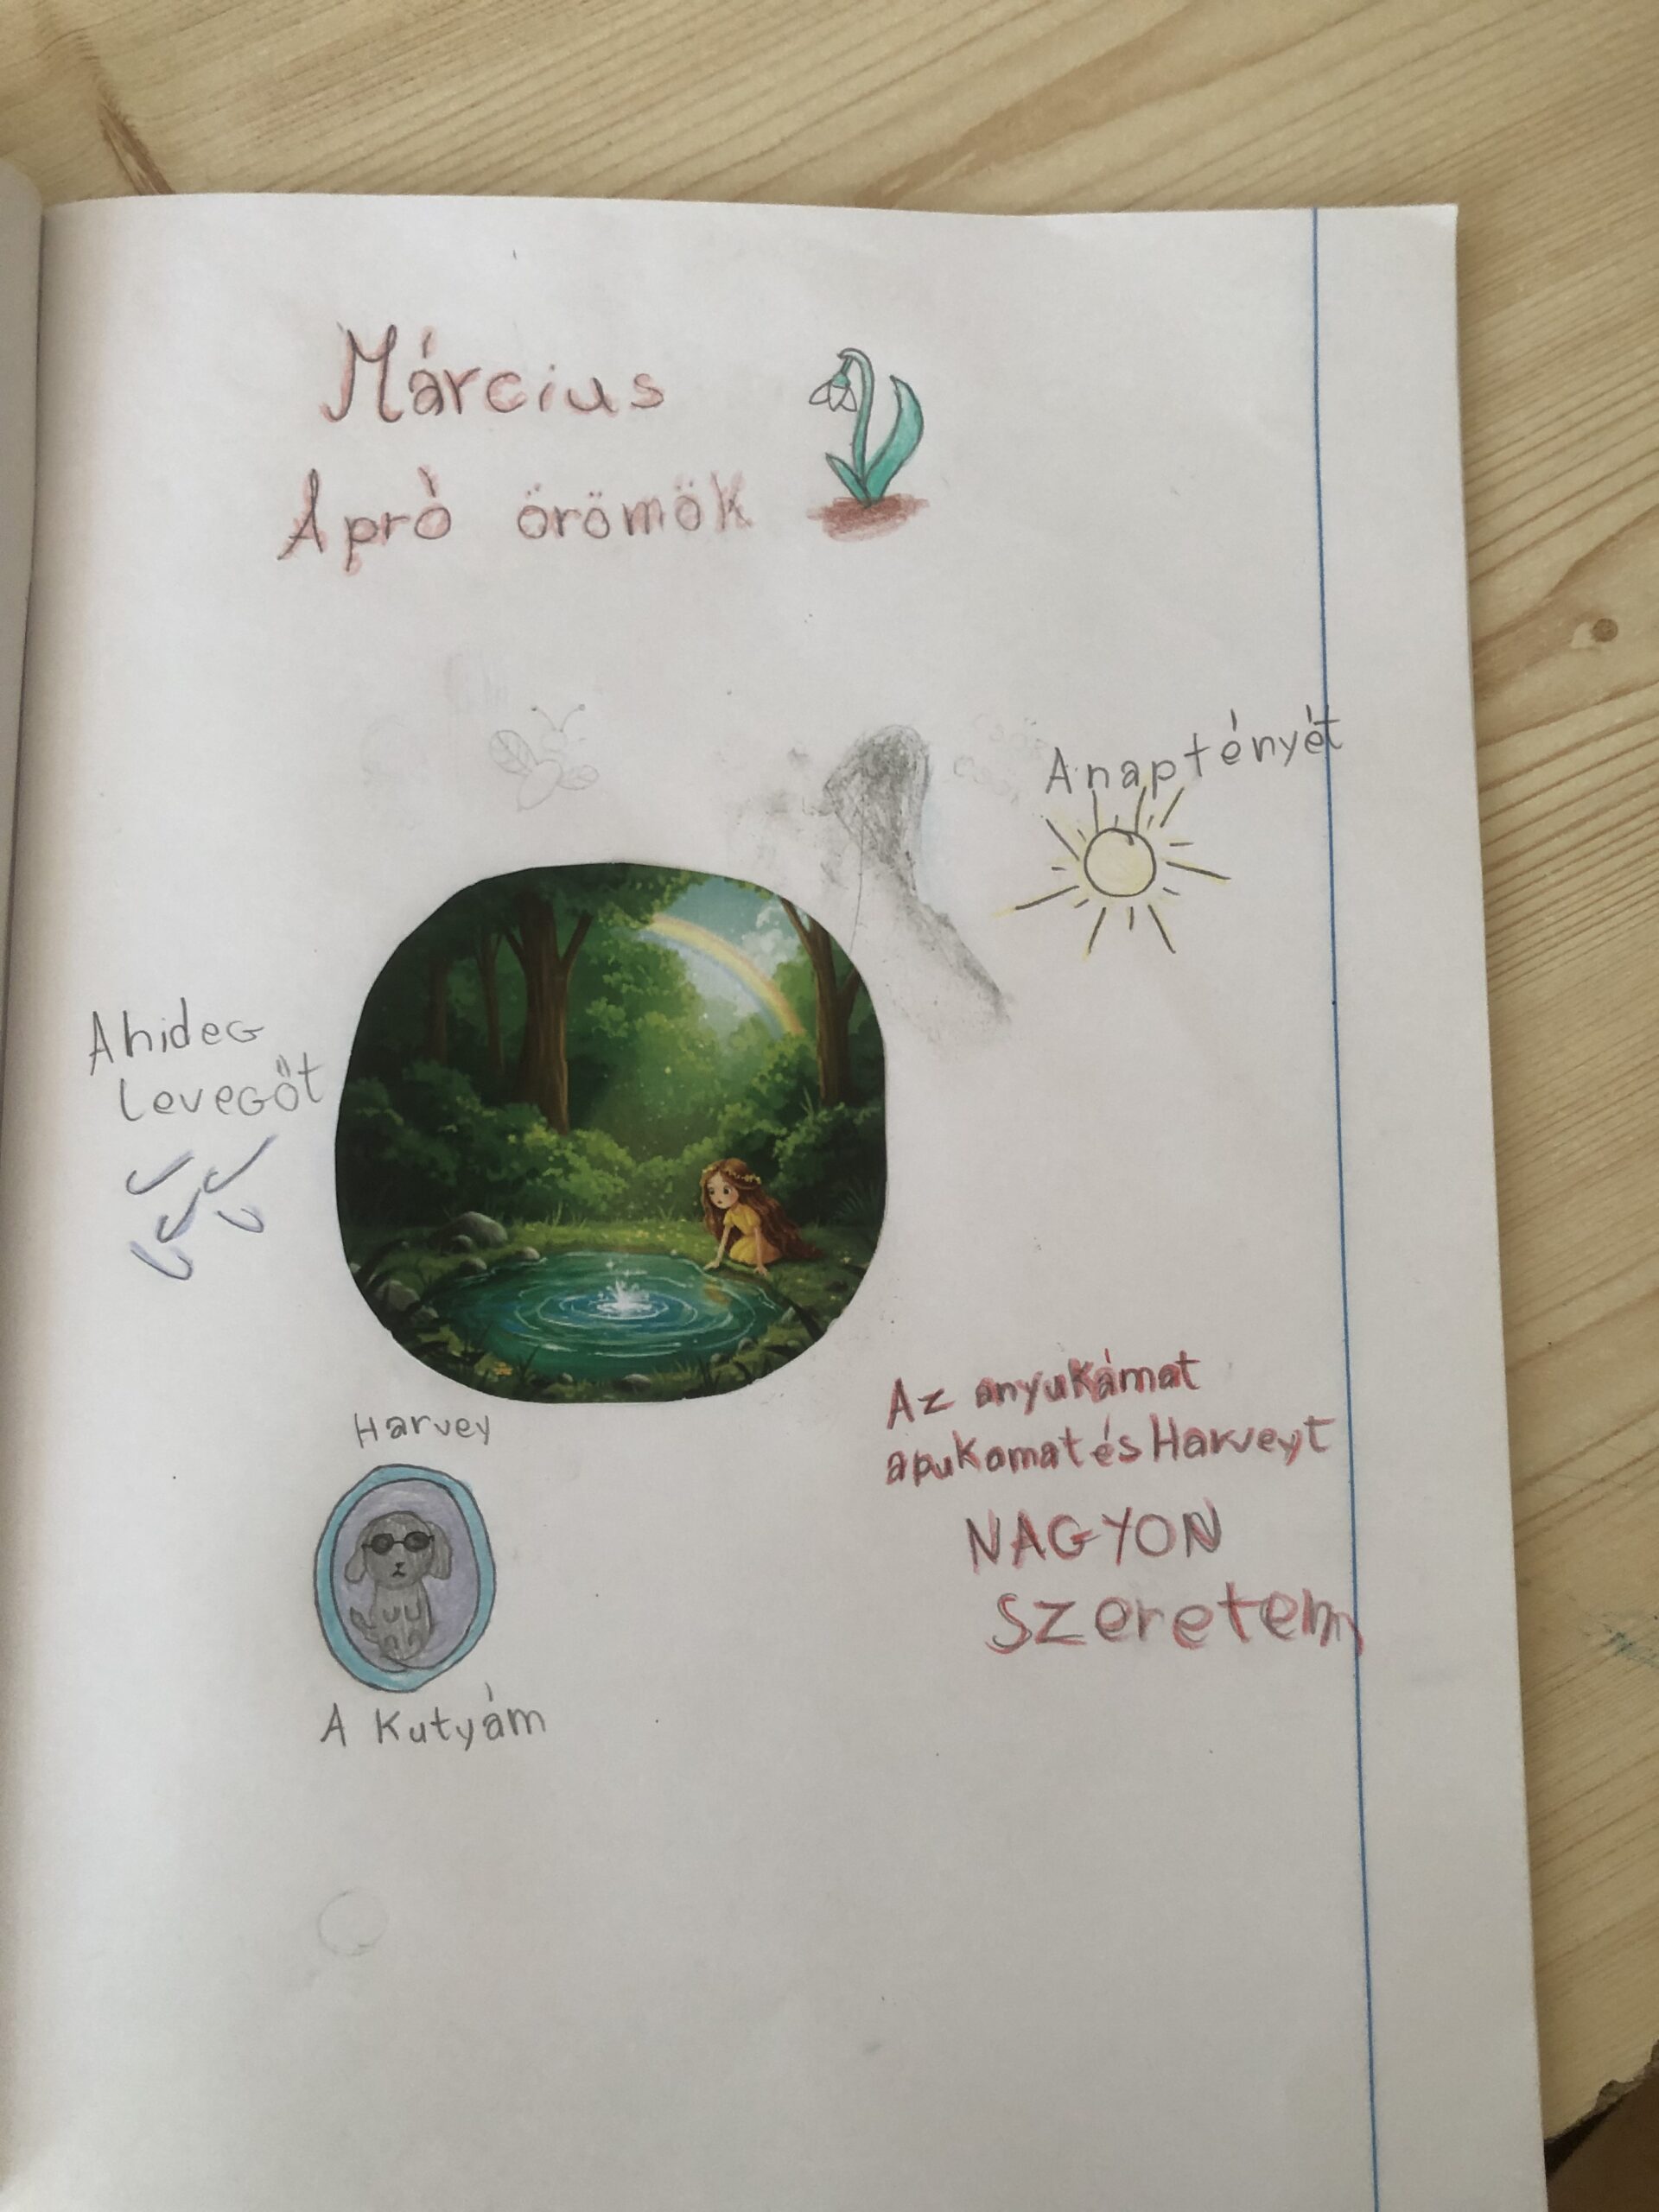 Március
Apró örömök
A naptényét
A hideg
levegőt
Harvey
A Kutyám
Az anyukámat
apukamat és Harveyt
NAGYON
szeretem